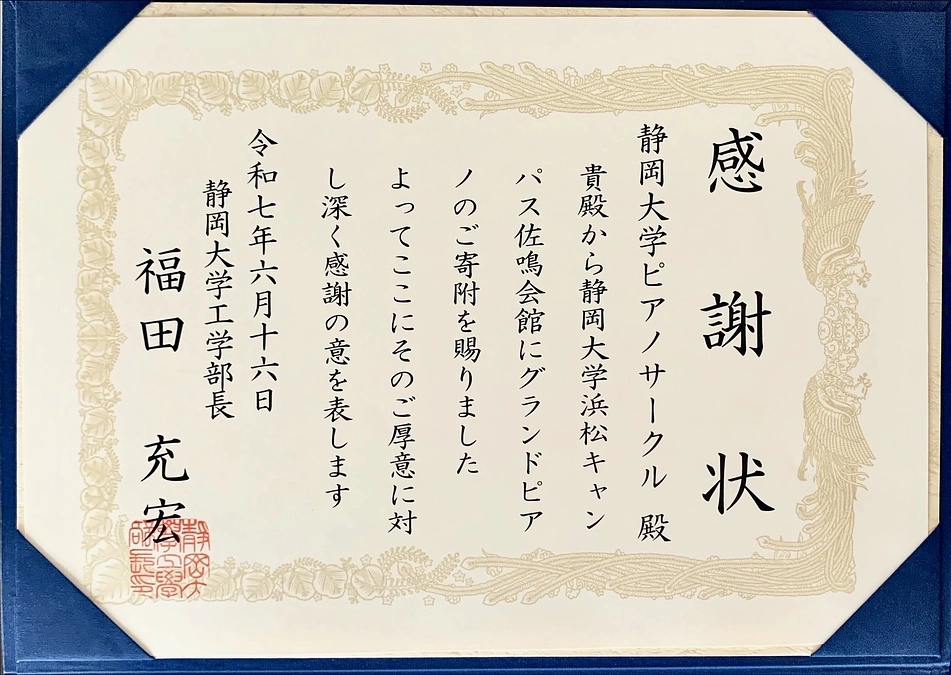 感謝状
静岡大学ピアノサークル 殿
貴殿から静岡大学浜松キャン
パス佐鳴会館にグランドピア
ノのご寄附を賜りました
よってここにそのご厚意に対
し深く感謝の意を表します
令和七年六月十六日
静岡大学工学部長
福田 充宏